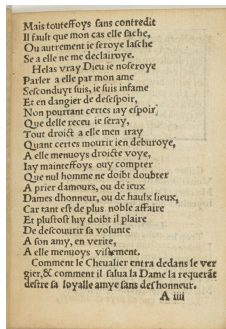 Mais touteffoys sans contredit
Il fault que mon cas elle sache,
Ou autrement ie seroye lasche
Se a elle ne me declairoye.
Helas vray Dieu ie noseroye
Parler a elle par mon ame
Sesconduyt suis, ie suis infame
Et en dangier de desespoir,
Non pourtant certes iay espoir
Que delle receu ie seray,
Tout droict a elle men iray
Quant certes mourir ien deburoye,
A elle menuoys droicte voye,
Iay maintesfoys ouy compter
Que nul homme ne doibt doubter
A prier damours, ou de ieux
Dames dhonneur, ou de haulx lieux,
Car tant est de plus noble affaire
Et plustost luy doibt il plaire
De descouurir sa volunte
A son amy, en verite,
A elle menuoys vistement.
Comment le Cheualier entra dedans le ver
gier, & comment il salua la Dame la requerãt
destre sa loyalle amye sans deshonneur.
A iiii